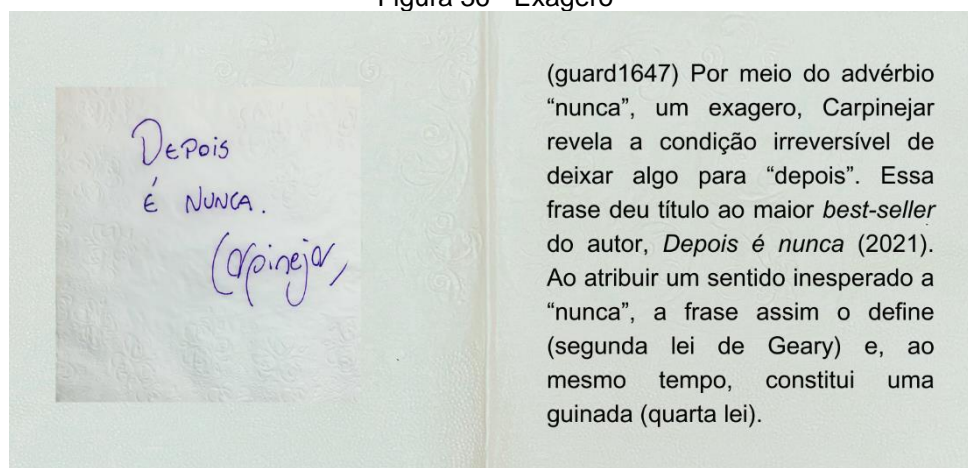 Figura 36 - Exagero
DEPOIS
É NUNCA.
Carpinejar
(guard1647) Por meio do advérbio
“nunca”, um exagero, Carpinejar
revela a condição irreversível de
deixar algo para “depois”. Essa
frase deu título ao maior best-seller
do autor, Depois é nunca (2021).
Ao atribuir um sentido inesperado a
“nunca”, a frase assim o define
(segunda lei de Geary) e, ao
mesmo tempo, constitui uma
guinada (quarta lei).